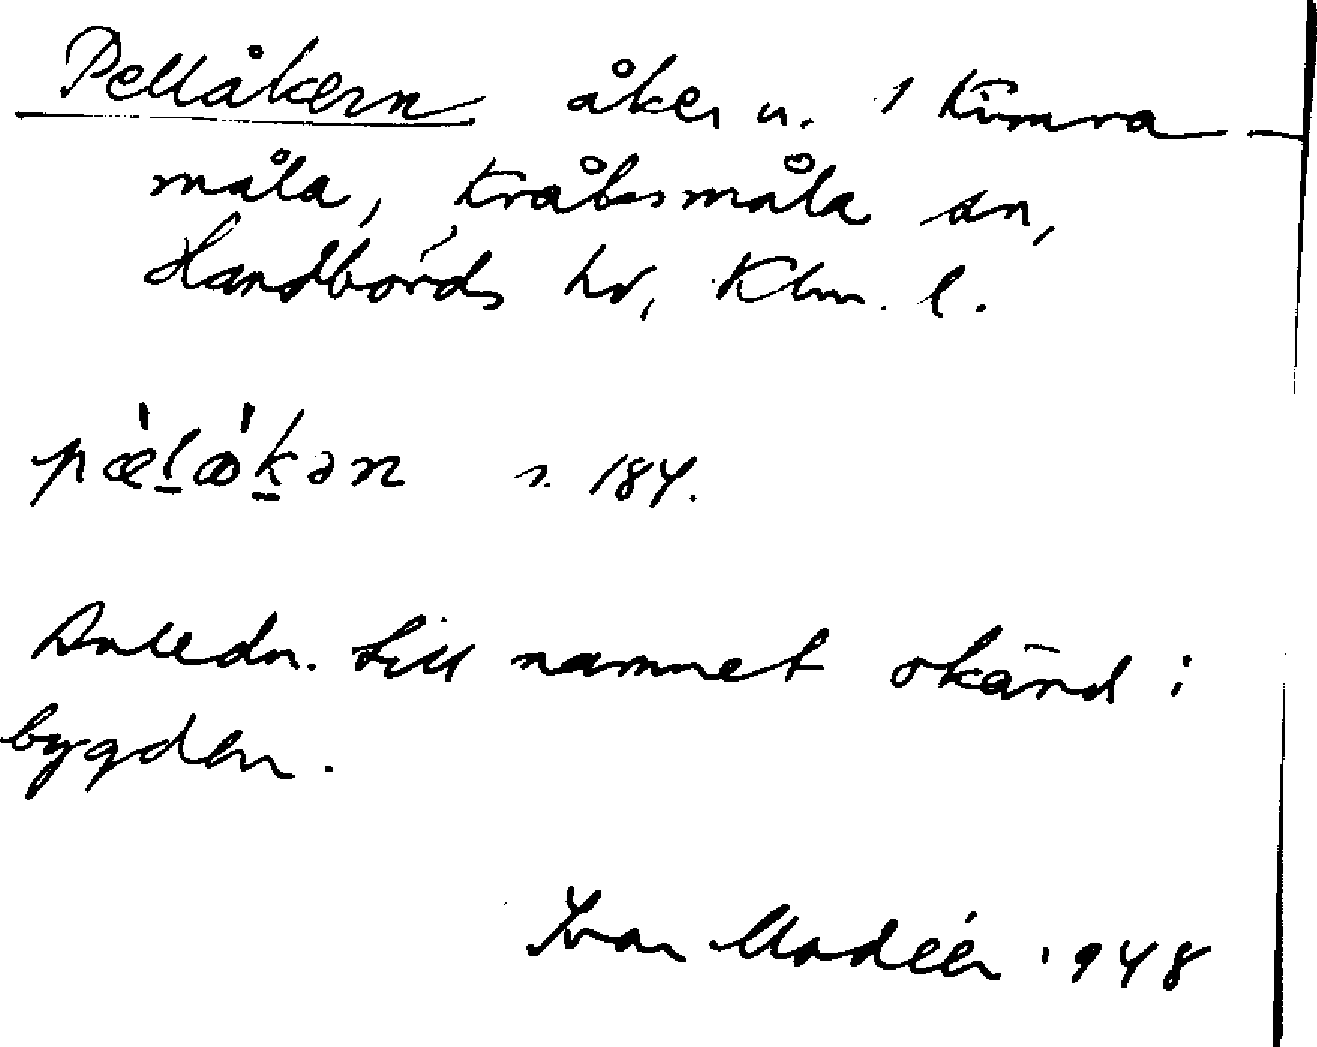 Pellåkern åker u. 1 Kimra-
måla, Kråksmåla sn,
Handbörds hd, Klm. l.
pæ̀lå̀kən s. 184.
Anledn. till namnet okänd i
bygden.
Ivar Modéer 1948